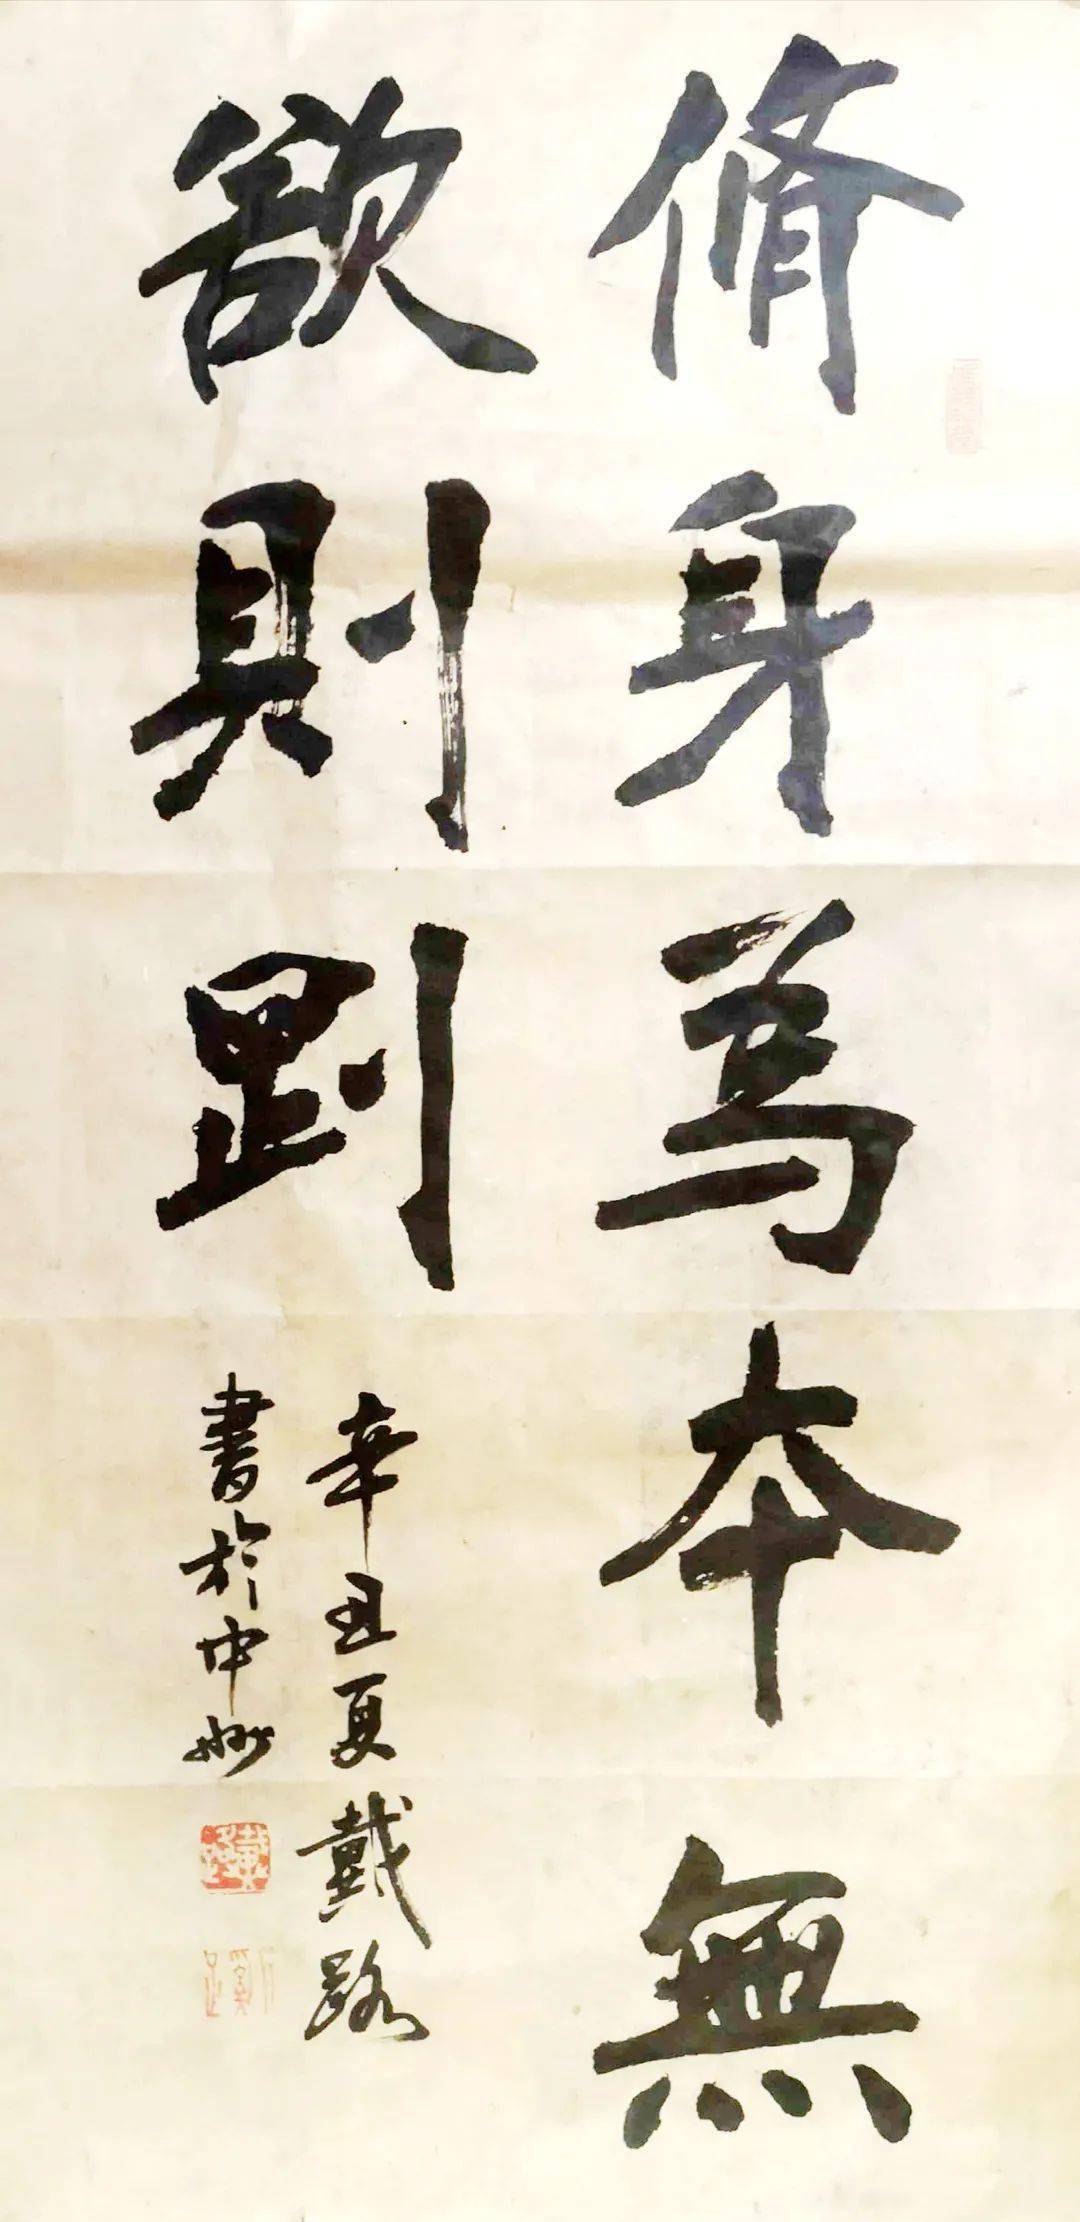 脩身為本無
欲則剛
辛丑夏戴路
書於中州